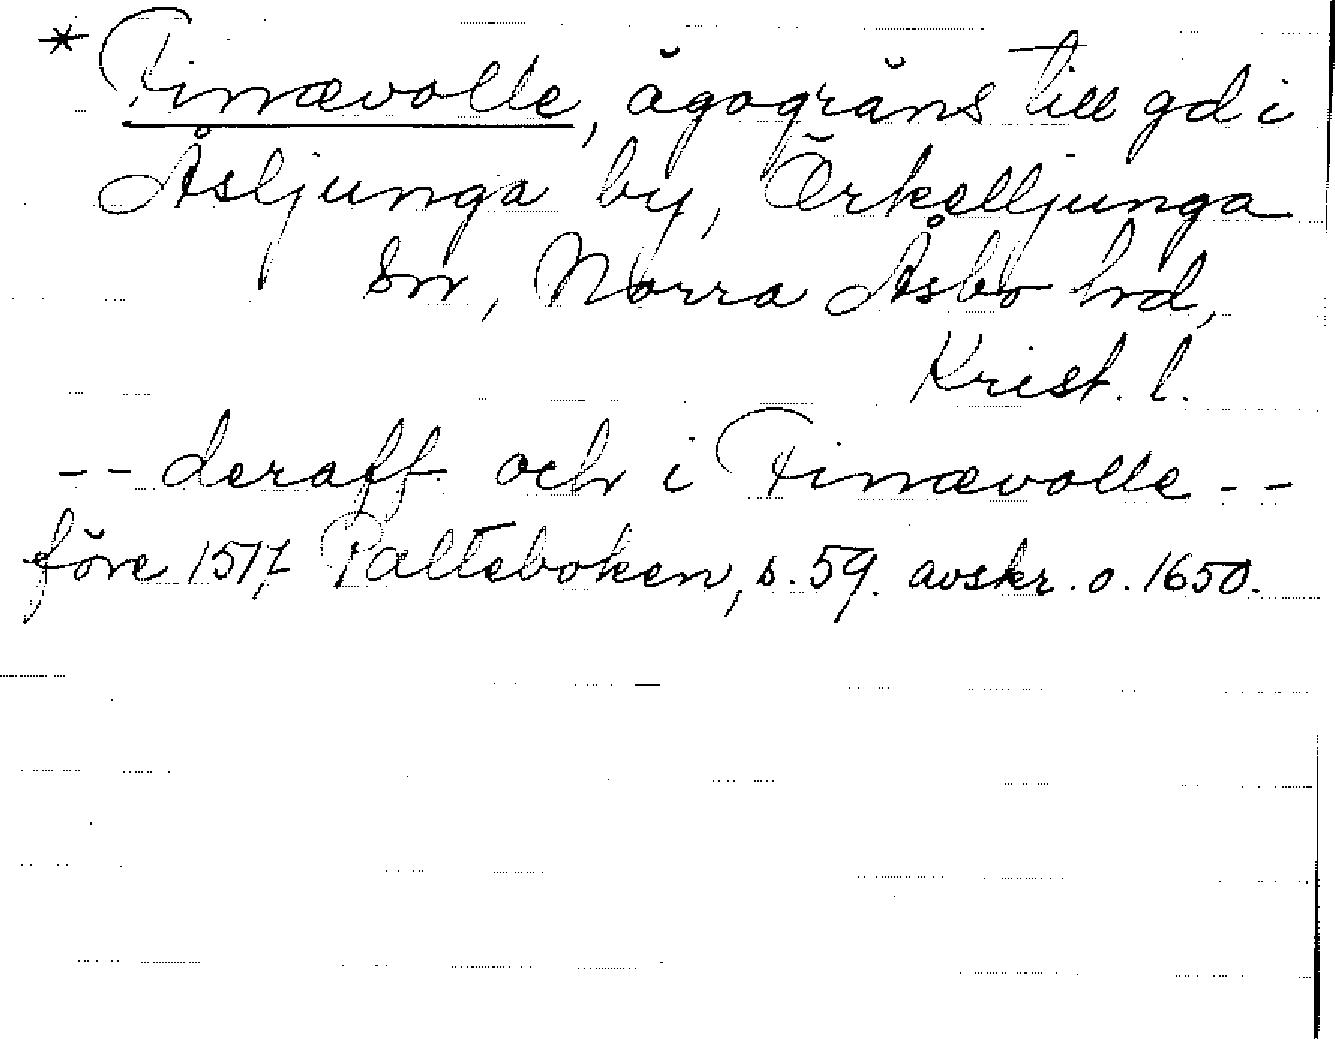 * Finævolle, ägogräns till gd i
Åsljunga by, Örkelljunga
sn, Norra Åsbo hd,
Krist. l.
-- deraff och i Finævolle --
före 1517, Palteboken, s. 59. avskr. o. 1650.